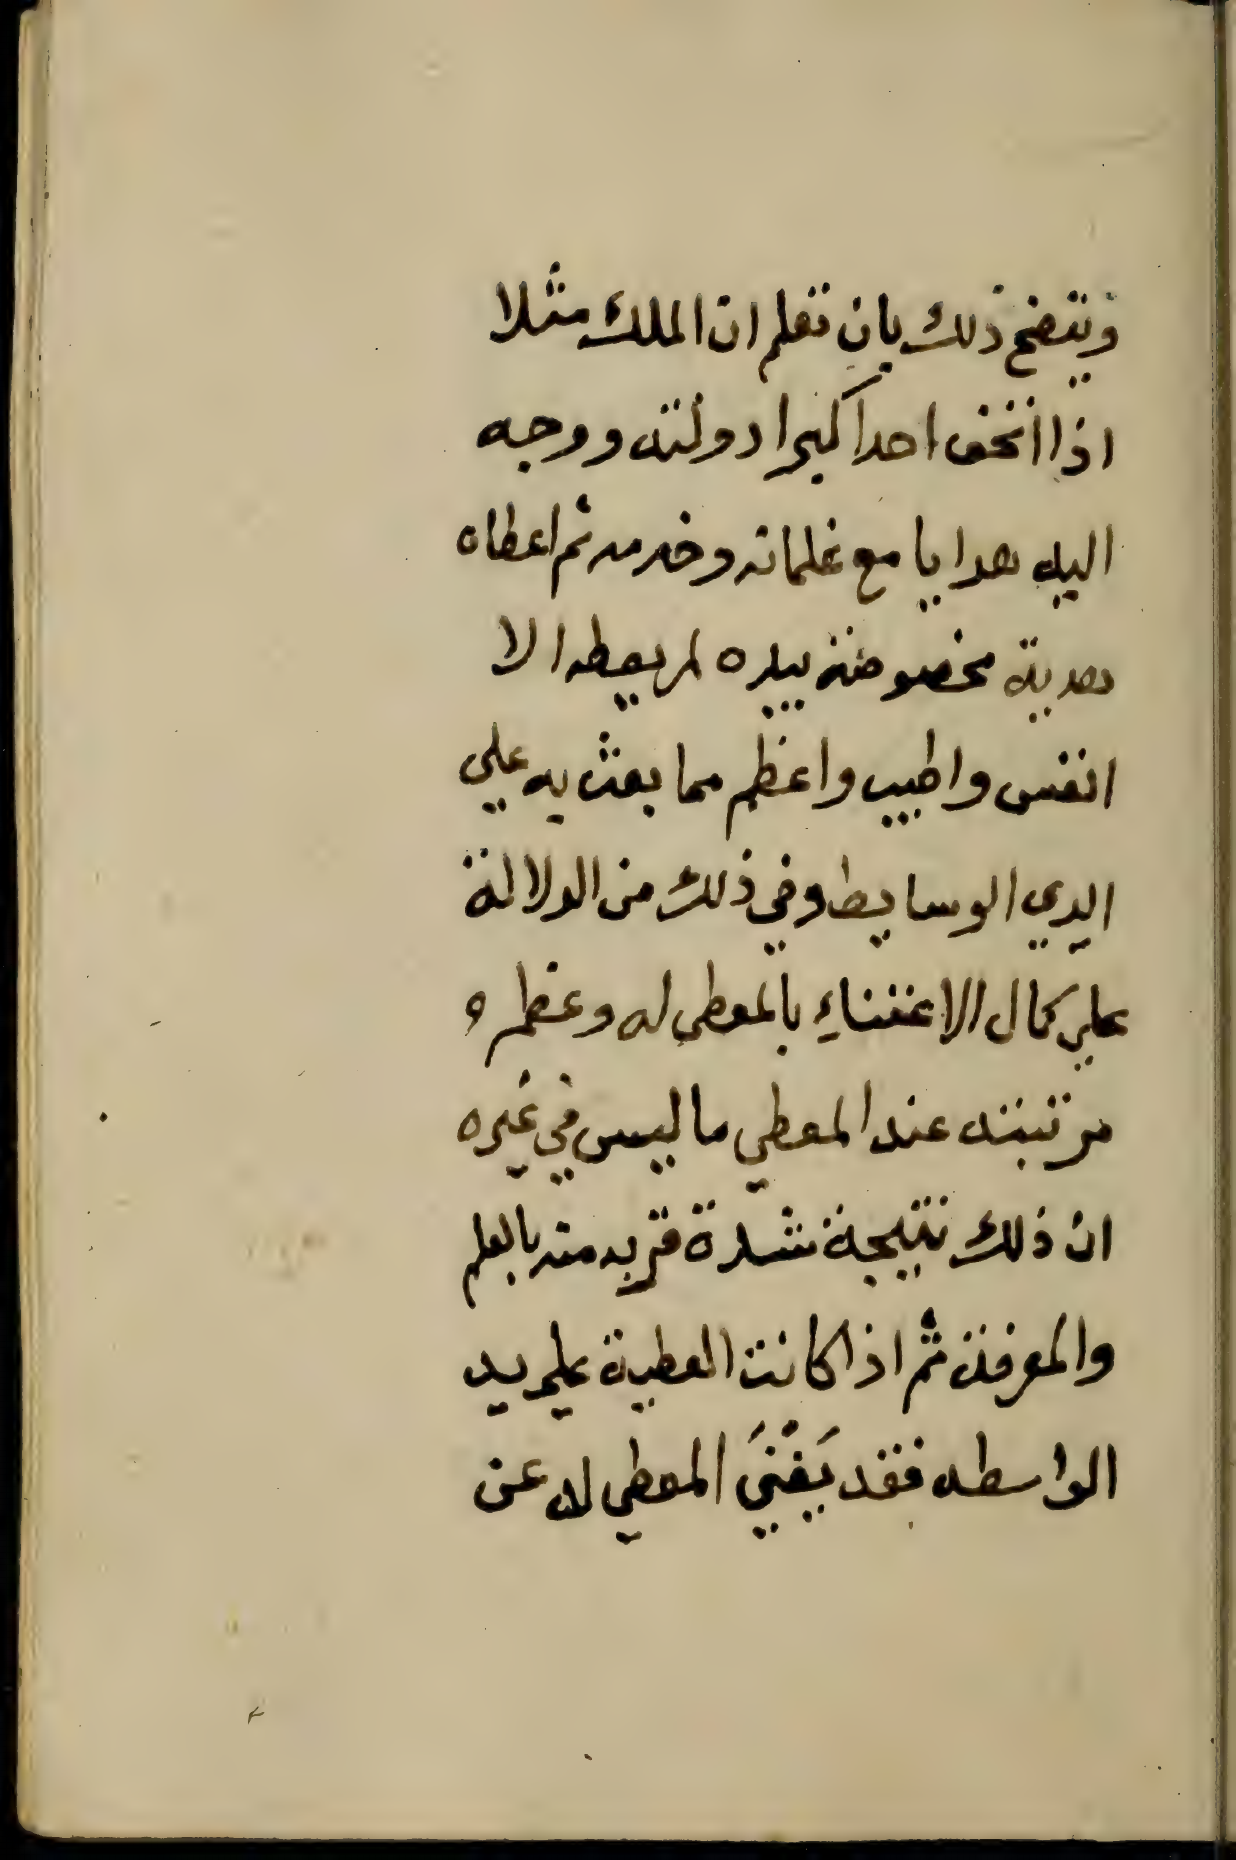 ويتضح ذلك بان تعلم ان الملك مثلا
اذا اتحف احدا كبيرا دولته ووجه
اليه هدايا مع غلمانه وخدمه ثم اعطاه
هدية مخصوصة بيده لم يعطه الا
انفس واطيب واعظم مما بعث به علي
ايدي الوسايط وفي ذلك من الدلالة
علي كمال الاعتناء بالمعطي له وعظم
مرتبته عند المعطي ما ليس في غيره
ان ذلك نتيجة شدة قربه منه بالعلم
والمعرفة ثم اذا كانت العطية علي يد
الواسطه فقد يَفْنيَ المعطي له عن